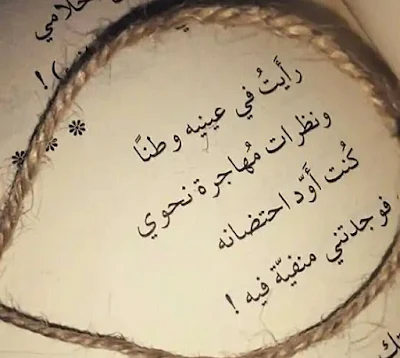 رَأَيتُ في عينيه وطنًا
ونظرات مُهاجرة نحوي
كُنت أَوَدّ احتضانه
فوجدتني منفيّة فيه !
* * *